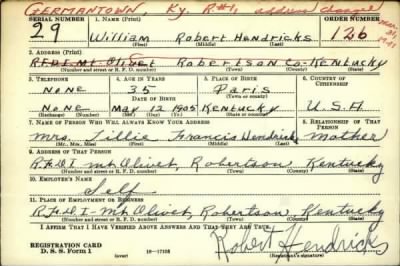 GERMANTOWN, Ky. R#1, address change
SERIAL NUMBER 1. NAME (Print) ORDER NUMBER
29 William Robert Hendricks 126
(First) (Middle) (Last)
2. ADDRESS (Print)
R.F.D.I. Mt Olivet Robertson Co - Kentucky
(Number and street or R. F. D. number) (Town) (County) (State)
3. TELEPHONE 4. AGE IN YEARS 5. PLACE OF BIRTH 6. COUNTRY OF CITIZENSHIP
None 35 Paris
(Town or county)
DATE OF BIRTH
None May 12 1905 Kentucky U.S.A
(Exchange) (Number) (Mo.) (Day) (Yr.) (State or country)
7. NAME OF PERSON WHO WILL ALWAYS KNOW YOUR ADDRESS 8. RELATIONSHIP OF THAT PERSON
Mrs. Tillie Francis Hendricks Mother
(Mr., Mrs., Miss) (First) (Middle) (Last)
9. ADDRESS OF THAT PERSON
R.F.D.I Mt Olivet, Robertson, Kentucky
(Number and street or R. F. D. number) (Town) (County) (State)
10. EMPLOYER'S NAME
Self
11. PLACE OF EMPLOYMENT OR BUSINESS
R.F.D.I - Mt Olivet, Robertson, Kentucky
(Number and street or R. F. D. number) (Town) (County) (State)
I AFFIRM THAT I HAVE VERIFIED ABOVE ANSWERS AND THAT THEY ARE TRUE.
REGISTRATION CARD
D. S. S. Form 1 16-17105 Robert Hendricks
(Registrant's signature)